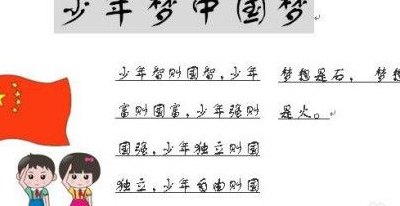 少年梦中国梦
少年智则国智，少年
富则国富，少年强则
国强，少年独立则国
独立，少年自由则国
梦想是石， 梦想
是火。